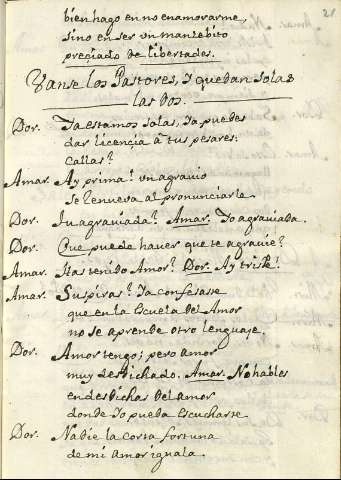 21
bien hago en no enamorarme,
sino en ser un manzebito
preçiado de libertades.
Vanse los Pastores, y quedan solas
las dos.
Dor. Ya estamos solas, ya puedes
dar licençia à tus pesares:
Callas?
Amar. Ay prima! un agravio
se renueva al pronunciarle.
Dor. Tu agraviada? Amar. Yo agraviada.
Dor. Que puede haver que te agravie?
Amar. Has tenido Amor? Dor. Ay triste!
Amar. Suspiras? Ya confesaste
que en la Escuela del Amor
no se aprende otro lenguaje.
Dor. Amor tengo; pero amor
muy desdichado. Amar. No hables
en desdichas del amor
donde Yo pueda Escucharte.
Dor. Nadie la corta fortuna
de mi Amor iguala.